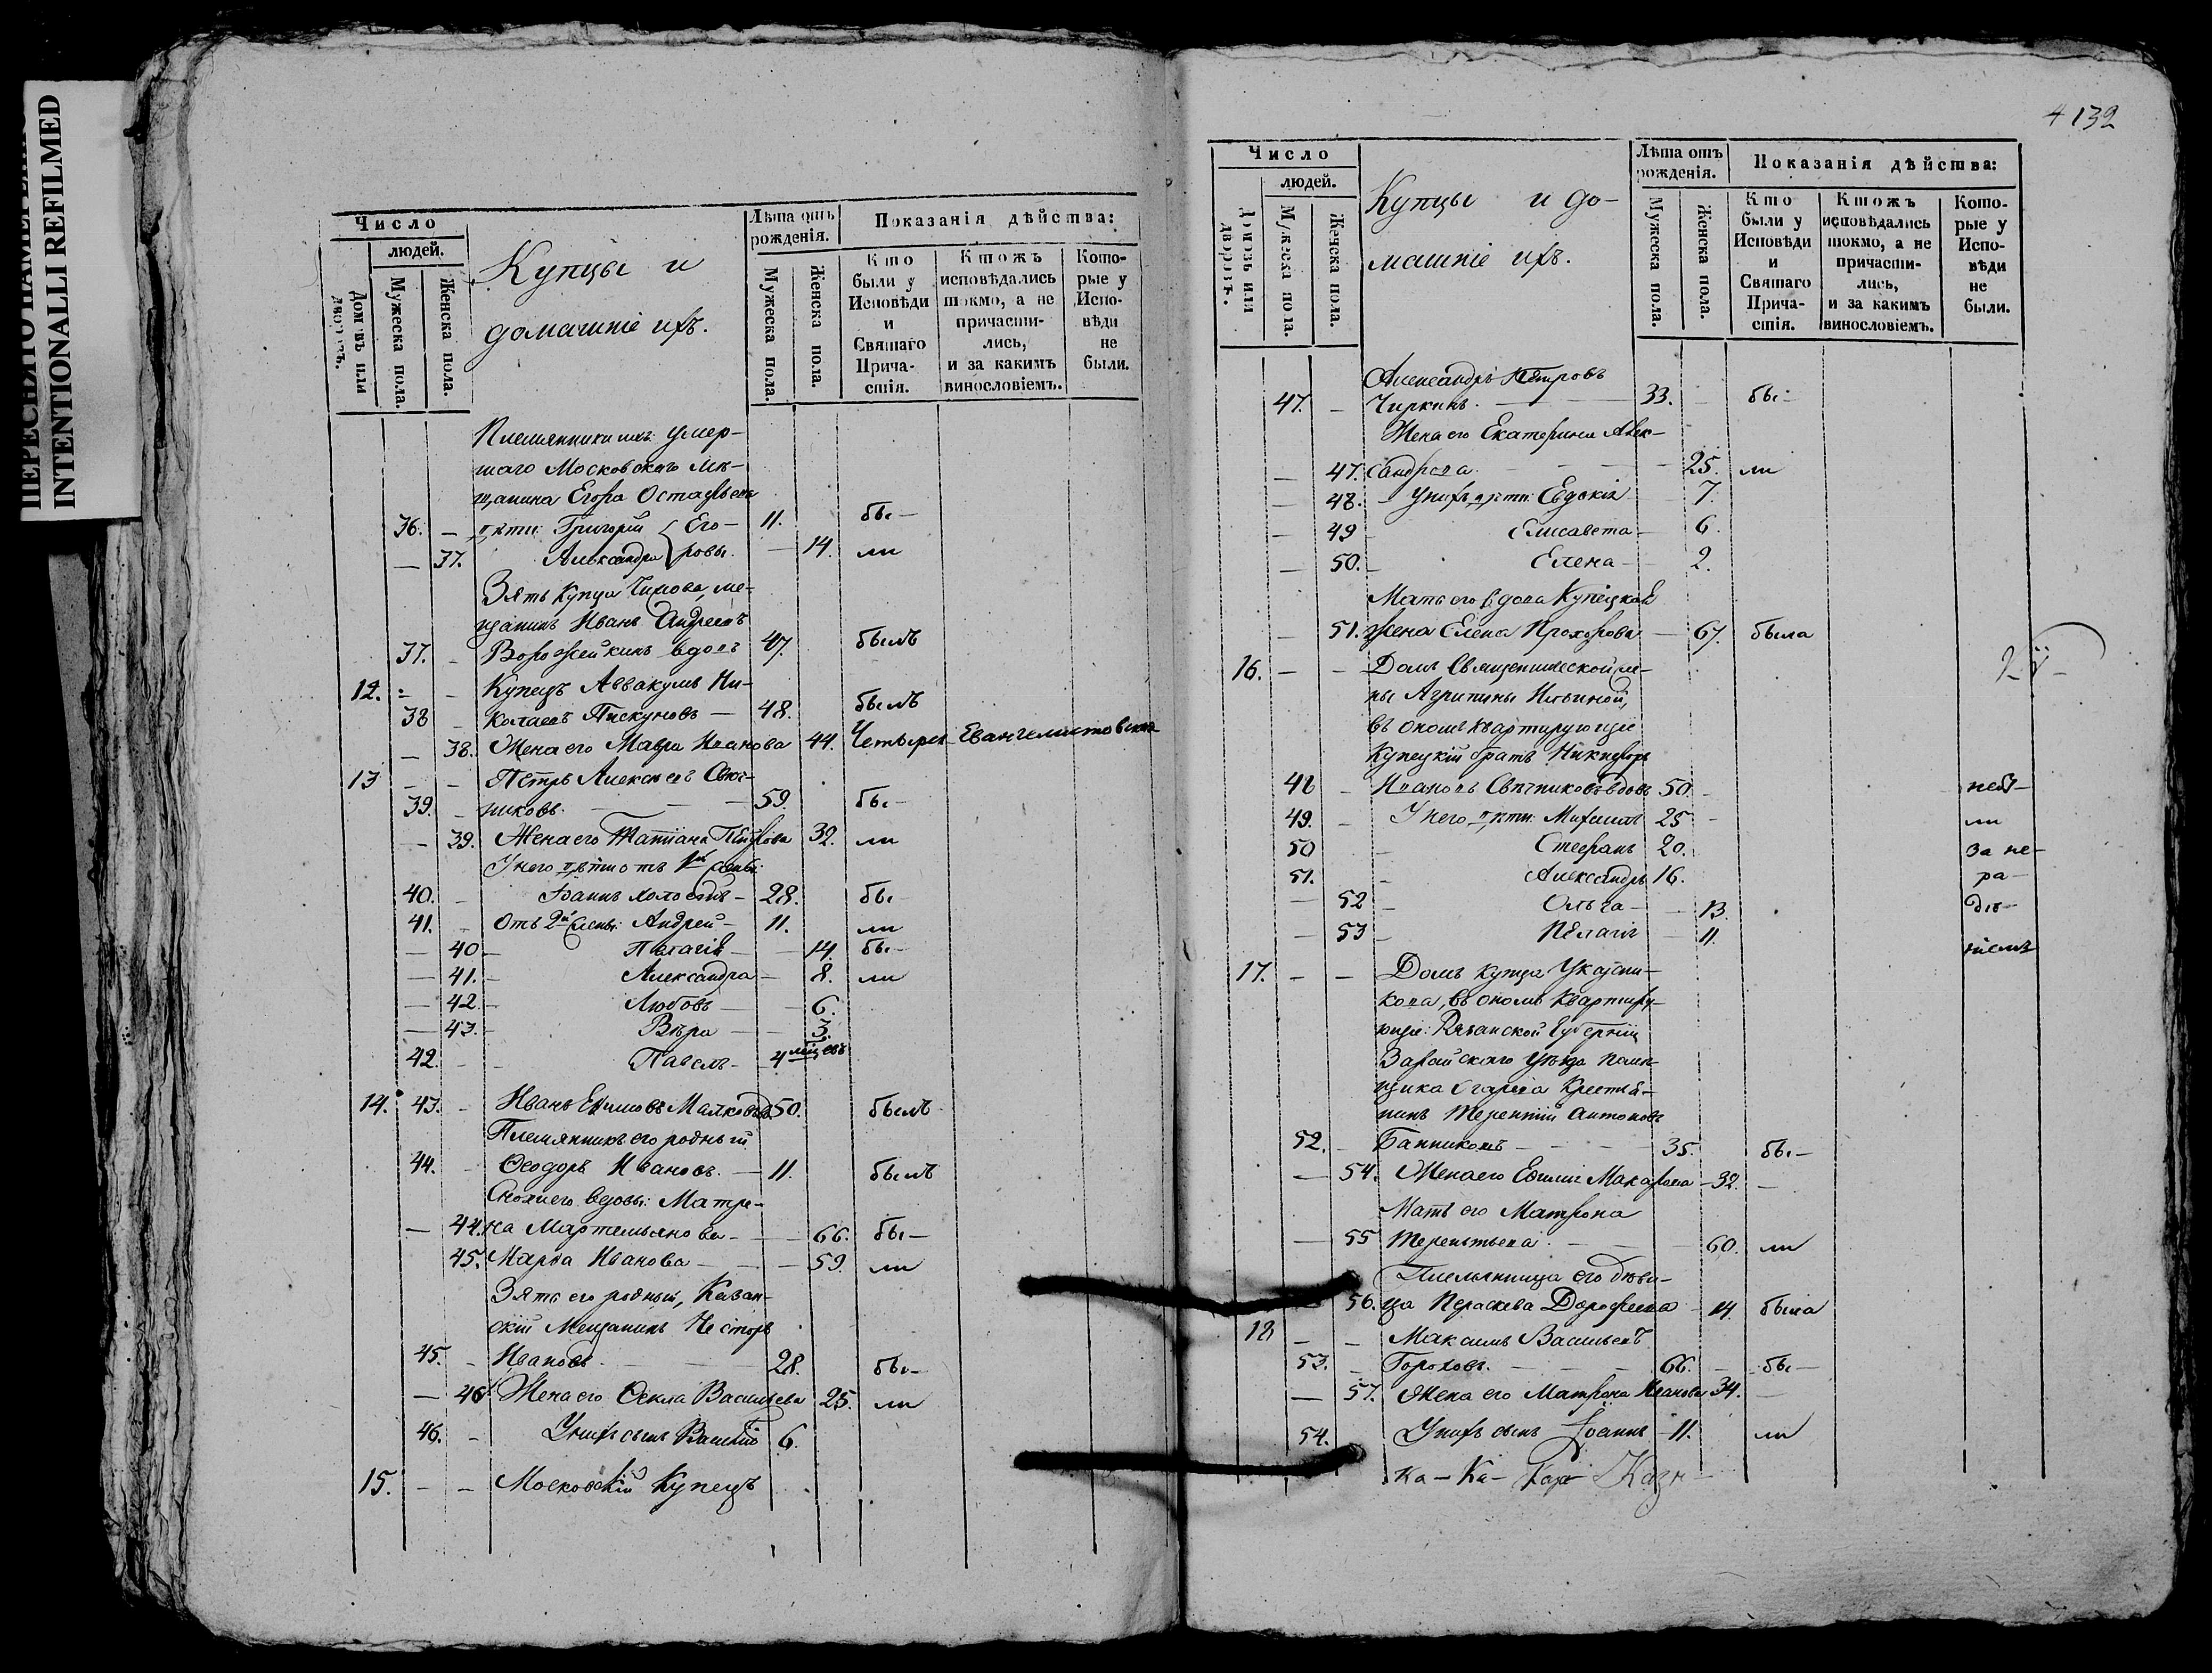 INTENTIONALLI REFILMED
4 132
Число
людей.
Домовъ или дворовъ.
Мужеска пола.
Женска пола.
Купцы и
домашніе ихъ.
Лѣта отъ рожденія.
Мужеска пола.
Женска пола.
Показанія дѣйства:
Кто были у Исповѣди и Святаго Прича-стія.
Ктожъ исповѣдались токмо, а не причасти-лись, и за какимъ винословіемъ.
Кото-рые у Испо-вѣди не были.
Племянники ихъ: умер-
шаго Московскаго мѣ-
щанина Егора
36. – дѣти: Григорій Его- 11. бы-
– 37. Александра ровы. – 14. ли
Зять купца ме-
щанинъ Иванъ Андреевъ
37. – Ворожейкинъ вдовъ 47. былъ
12. – – Купецъ Аввакумъ Ни-
38 – колаевъ Пискуновъ – 48. былъ
– 38. Жена его Мавра Иванова 44. Четырех-Евангелистовская
13 – – Петръ Алексѣевъ
39. – никовъ. – – – 59. бы-
– 39. Жена его Татіана Петрова 32. ли
У него дѣти отъ 1й жены:
40. – Іоаннъ холостъ – 28. бы-
41. – Отъ 2й жены: Андрей – 11. ли
– 40 – Пелагія – – 14. бы-
– 41. – Александра – 8. ли
– 42. – Любовь – – 6.
– 43. – Вѣра – – 3.
42. – – Павелъ – 4 мѣсяцевъ
14. 43. – Иванъ Ефимовъ 50. былъ
Племянникъ его родный
44. – Ѳеодоръ Ивановъ. – 11. былъ
Снохи его вдовы: Матре-
– 44. на Мартемьянова – – 66. бы-
45. Марѳа Иванова – – – 59. ли
Зять его родный, Казан-
скій Мещанинъ Несторъ
45. – Ивановъ. – – 28. бы-
– 46 Жена его Ѳекла Васильева 25. ли
46. – У нихъ сынъ Василій 6.
15. – – Московскій Купецъ
Число
людей.
Домовъ или дворовъ.
Мужеска пола.
Женска пола.
Купцы и до-
машніе ихъ.
Лѣта отъ рожденія.
Мужеска пола.
Женска пола.
Показанія дѣйства:
Кто были у Исповѣди и Святаго Прича-стія.
Ктожъ исповѣдались токмо, а не причасти-лись, и за какимъ винословіемъ.
Кото-рые у Испо-вѣди не были.
Александръ Петровъ
47. – Чиркинъ. – 33. – бы-
Жена его Екатерина Алек-
– 47. сандрова. – – – 25. ли
– 48. – У нихъ дѣти: Евдокія – 7.
– 49 – Елисавета – 6.
– 50. – Елена – 2.
Мать его вдова Купецкая
– 51. жена Елена Прохорова – 67. была
16. – – Домъ Священнической
Агрипины Ильиной,
въ ономъ квартирующіе
Купецкій братъ Никифоръ
48 – Ивановъ Свѣчниковъ вдовъ 50. – небы-
49. – У него дѣти: Михаилъ 25 – ли
50 – Стефанъ 20. за не-
51. – Александръ 16. ра-
– 52 – Ольга – – 13. дѣ-
– 53 – Пелагія – 11. ніемъ
17. – – Домъ купца
кова, въ ономъ квартиру-
ющіе: Рязанской Губерніи
Зарайскаго уѣзда помѣ-
щика Крестья-
нинъ Терентій Антоновъ
52. – – – – 35. бы-
– 54. Жена его Макарова – 32. –
Мать его Матрона
– 55 Терентьева. – – – 60. ли
Племянница его дѣви-
56. ца Параскева Дорофеева – 14. была
18 – – Максимъ Васильевъ
53. – Гороховъ. – – – 66. – бы-
– 57. Жена его Матрона Иванова 34. –
54. У нихъ сынъ Іоаннъ – 11. ли